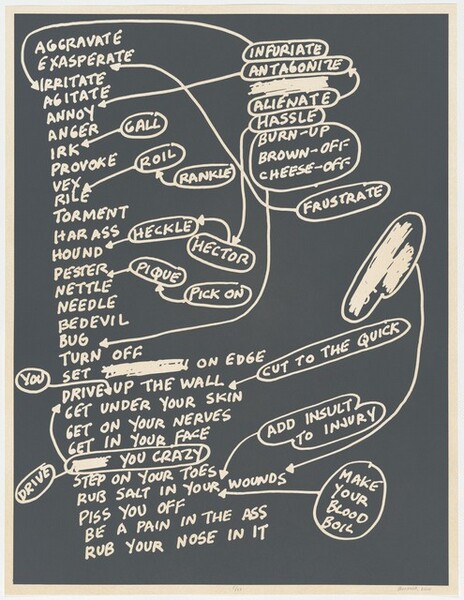 AGGRAVATE
EXASPERATE
IRRITATE
AGITATE
ANNOY
ANGER
IRK
PROVOKE
VEX
RILE
TORMENT
HARASS
HOUND
PESTER
NETTLE
NEEDLE
BEDEVIL
BUG
TURN OFF
SET ON EDGE
DRIVE UP THE WALL
GET UNDER YOUR SKIN
GET ON YOUR NERVES
GET IN YOUR FACE
YOU CRAZY
STEP ON YOUR TOES
RUB SALT IN YOUR WOUNDS
PISS YOU OFF
BE A PAIN IN THE ASS
RUB YOUR NOSE IN IT
GALL
ROIL
RANKLE
HECKLE
HECTOR
PIQUE
PICK ON
YOU
DRIVE
INFURIATE
ANTAGONIZE
ALIENATE
HASSLE
BURN-UP
BROWN-OFF
CHEESE-OFF
FRUSTRATE
CUT TO THE QUICK
ADD INSULT
TO INJURY
MAKE
YOUR
BLOOD
BOIL